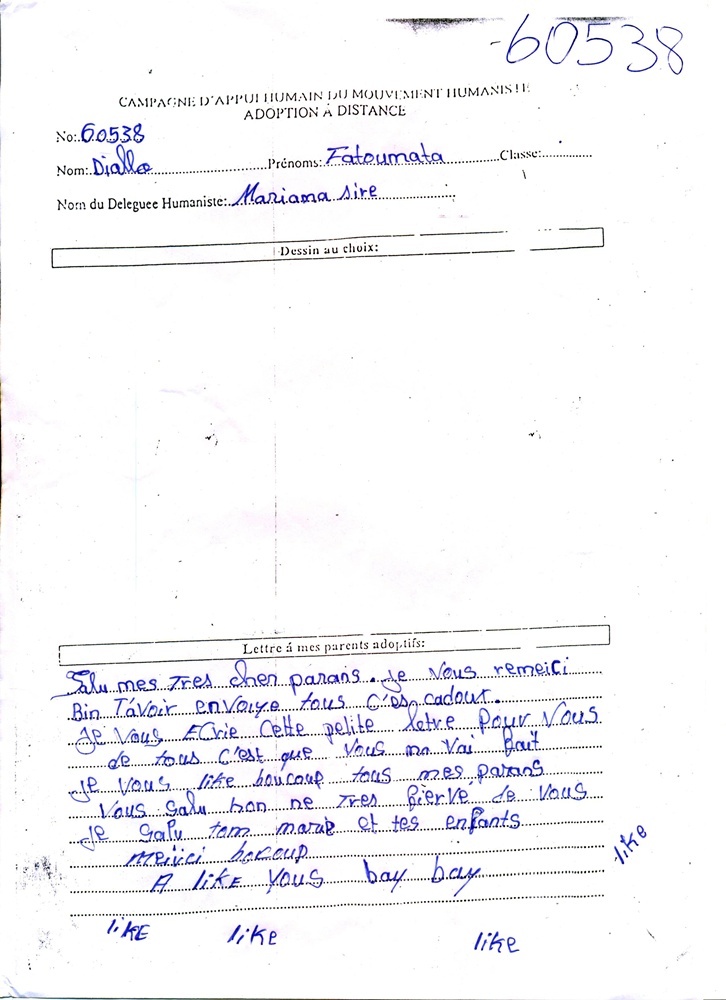 -60538
CAMPAGNE D'APPUI HUMAIN DU MOUVEMENT HUMANISTE
ADOPTION À DISTANCE
No: 60538
Nom: Diallo Prénoms: Fatoumata Classe:
Nom du Deleguee Humaniste: Mariama sire
Dessin au choix:
Lettre á mes parents adoptifs:
Salu mes Tres cher parans. Je Vous remeici
Bin Tavoir envoiye tous c'es cadour.
Je Vous Ecrie cette petite letre Pour Vous
de tous c'est que Vous ma Vai fait
Je Vous like boucoup tous mes parans
Vous salu bon ne Tres fierve de Vous
Je salu tom marie et tes enfants
meirci bocoup
A like yous bay bay
like
like like like